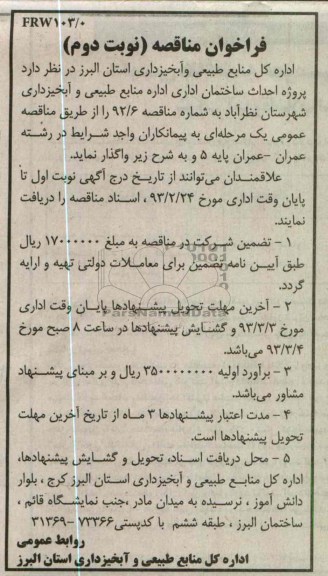 FRW۱۰۳/۰
فراخوان مناقصه (نوبت دوم)
اداره کل منابع طبیعی وآبخیزداری استان البرز در نظر دارد
پروژه احداث ساختمان اداری اداره منابع طبیعی و آبخیزداری
شهرستان نظرآباد به شماره مناقصه ۹۲/۶ را از طریق مناقصه
عمومی یک مرحله‌ای به پیمانکاران واجد شرایط در رشته
عمران -عمران پایه ۵ و به شرح زیر واگذار نماید.
علاقمندان می‌توانند از تاریخ درج آگهی نوبت اول تا
پایان وقت اداری مورخ ۹۳/۲/۲۴ ، اسناد مناقصه را دریافت
نمایند.
۱ - تضمین شرکت در مناقصه به مبلغ ۱۷۰۰۰۰۰۰ ریال
طبق آیین نامه تضمین برای معاملات دولتی تهیه و ارایه
گردد.
۲ - آخرین مهلت تحویل پیشنهادها پایان وقت اداری
مورخ ۹۳/۳/۳ و گشایش پیشنهادها در ساعت ۸ صبح مورخ
۹۳/۳/۴ می‌باشد.
ParsNamadData
۳ - برآورد اولیه ۳۵۰۰۰۰۰۰۰۰ ریال و بر مبنای پیشنهاد
مشاور می‌باشد.
۴ - مدت اعتبار پیشنهادها ۳ ماه از تاریخ آخرین مهلت
تحویل پیشنهادها است.
۵ - محل دریافت اسناد، تحویل و گشایش پیشنهادها،
اداره کل منابع طبیعی و آبخیزداری استان البرز کرج ، بلوار
دانش آموز ، نرسیده به میدان مادر ،جنب نمایشگاه قائم ،
ساختمان البرز ، طبقه ششم با کدپستی۷۳۳۶۶ -۳۱۳۶۹
روابط عمومی
اداره کل منابع طبیعی و آبخیزداری استان البرز